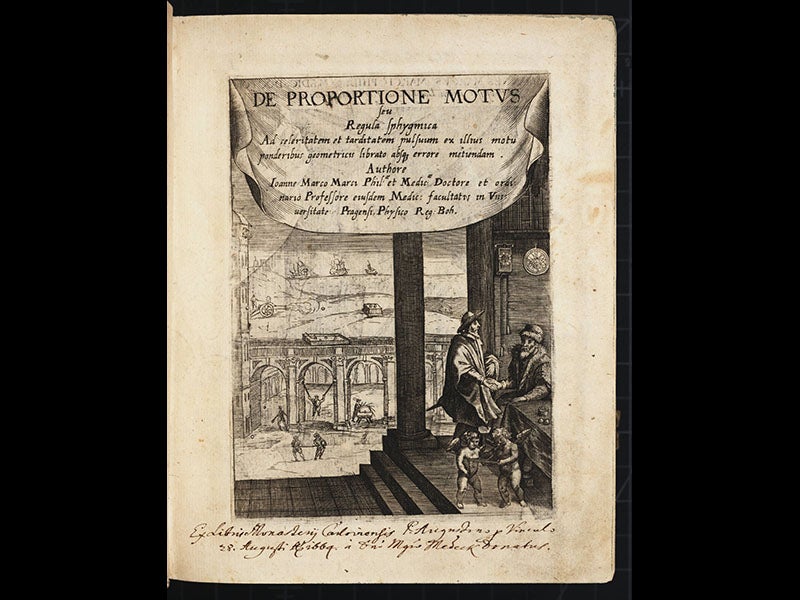 DE PROPORTIONE MOTVS
seu
Regula sphygmica
Ad celeritatem et tarditatem pulsuum ex illius motu
ponderibus geometricis librato absq; errore metiendam.
Authore
Ioanne Marco Marci Phil: et Medic: Doctore et ordi
nario Professore eiusdem Medic: facultatis in Vni
uersitate Pragensi, Physico Reg. Boh.
Ex Libris Monasterij P. Augustino
28. Augusti à Donatus.